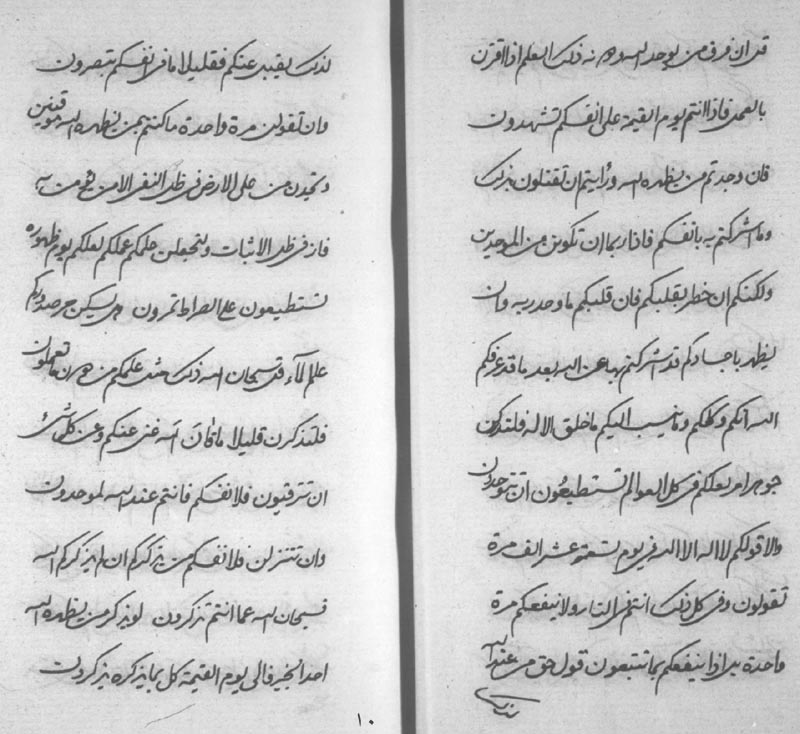 قل ان فرق من يوحد الله وه نه ذلك العلم اذا اقترن
بالعمل فاذا انتم يوم القيمة على انفسكم تشهدون
فان وجدتم من يظهره الله ورايتم ان تقتلون بذلك
وما اشركتم به بانفسكم فاذا ربما ان تكونن من الموحدين
ولكنكم ان خطر بقلبكم فان قلبكم ما وحد ربه وان
يظهر باجسادكم قد اشركتم بها عن الله بعد ما قد عرفكم
الله انكم وكلكم وما ينسب اليكم ما خلق الا له فلتدركن
جوهر امر لعلكم في كل العوالم تستطيعون ان تتوحدون
والا قولكم لا اله الا الله في يوم تسعة عشر الف مرة
تقولون وفي كل ذلك انتم في النار ولا ينفعكم مرة
واحدة بل اذا ينفعكم بما تتبعون قول حق من عند الله
لذلك يقبل عنكم فقليلا ما في انفسكم تبصرون
وان تقولن مرة واحدة ما كنتم بمن يظهره الله موقنين
وتجدن من على الارض في ظل النفي الا من يؤمن به
فاز في ظل الاثبات ولتجعلن علمكم عملكم لعلكم يوم ظهوره
تستطيعون على الصراط تمرون ولا يسكن حر صدوركم
علم الماء قل سبحان الله ذلك مثل علمكم من دون ما تعملون
فلتذكرن قليلا ما كان الله غني عنكم وعن كل شئ
ان تترقيون فلانفسكم فانتم عند الله لموحدون
وان تتنزلن فلانفسكم من يذكركم ان لم يذكركم الله
فسبحان الله عما انتم تذكرون لو يذكر من يظهره الله
احد الخير فالى يوم القيمة كل بما يذكره يذكرون
١٠